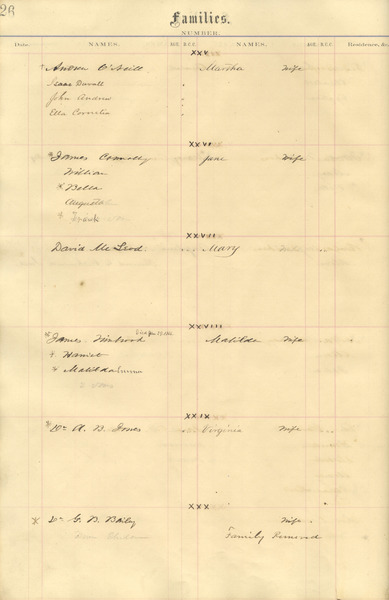 26
Families.
NUMBER.
Date. NAMES. AGE. REC. NAMES. AGE. REC. Residence, &c.
XXV
Andrew O'Neill Martha Wife
Isaac Duvall
John Andrew
Ella Cornelia
XXVI
James Connolly Jane Wife
William
x Bella
August
Frank
XXVII
David McLeod Mary
XXVIII
James Matilda Wife
Harriet
Matilda
XXIX
Dr A. B. Jones Virginia Wife
XXX
x Dr G. B. Wife
Family Removed